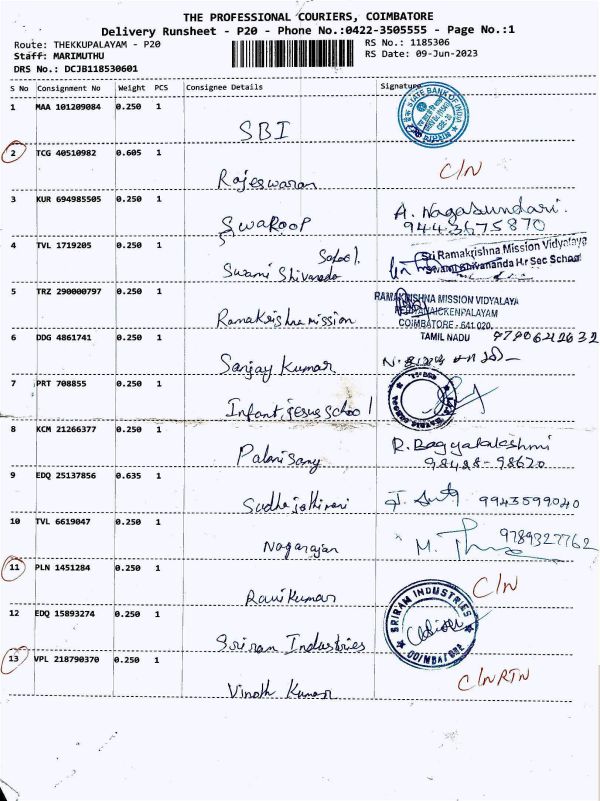 THE PROFESSIONAL COURIERS, COIMBATORE
Delivery Runsheet - P20 - Phone No.:0422-3505555 - Page No.:1
Route: THEKKUPALAYAM - P20 RS No.: 1185306
Staff: MARIMUTHU RS Date: 09-Jun-2023
DRS No.: DCJB118530601
S No Consignment No Weight PCS Consignee Details Signature
1 MAA 101209084 0.250 1
SBI STATE BANK OF INDIA
2 TCG 40510982 0.605 1
Rajeswaran C/N
3 KUR 694985505 0.250 1
SWAROOP A. Nagasundari.
9443675870
4 TVL 1719205 0.250 1
Swami Shivanada School. Sri Ramakrishna Mission Vidyalaya
Swami Shivananda Hr Sec School
5 TRZ 290000797 0.250 1
Ramakrishna mission RAMAKRISHNA MISSION VIDYALAYA
PERIYANAICKENPALAYAM
COIMBATORE - 641 020
TAMIL NADU
6 DDG 4861741 0.250 1
Sanjay Kumar
7 PRT 708855 0.250 1
Infant jesus school
8 KCM 21266377 0.250 1
Palanisamy R. Bagyalakshmi
98428-98620
9 EDQ 25137856 0.635 1
9943599040
10 TVL 6619047 0.250 1
Nagarajan 9789327762
11 PLN 1451284 0.250 1
Ravikumar C/N
12 EDQ 15893274 0.250 1
Sriram Industries SRIRAM INDUSTRIES
COIMBATORE
13 VPL 218790370 0.250 1
Vinoth Kumar C/N RTN